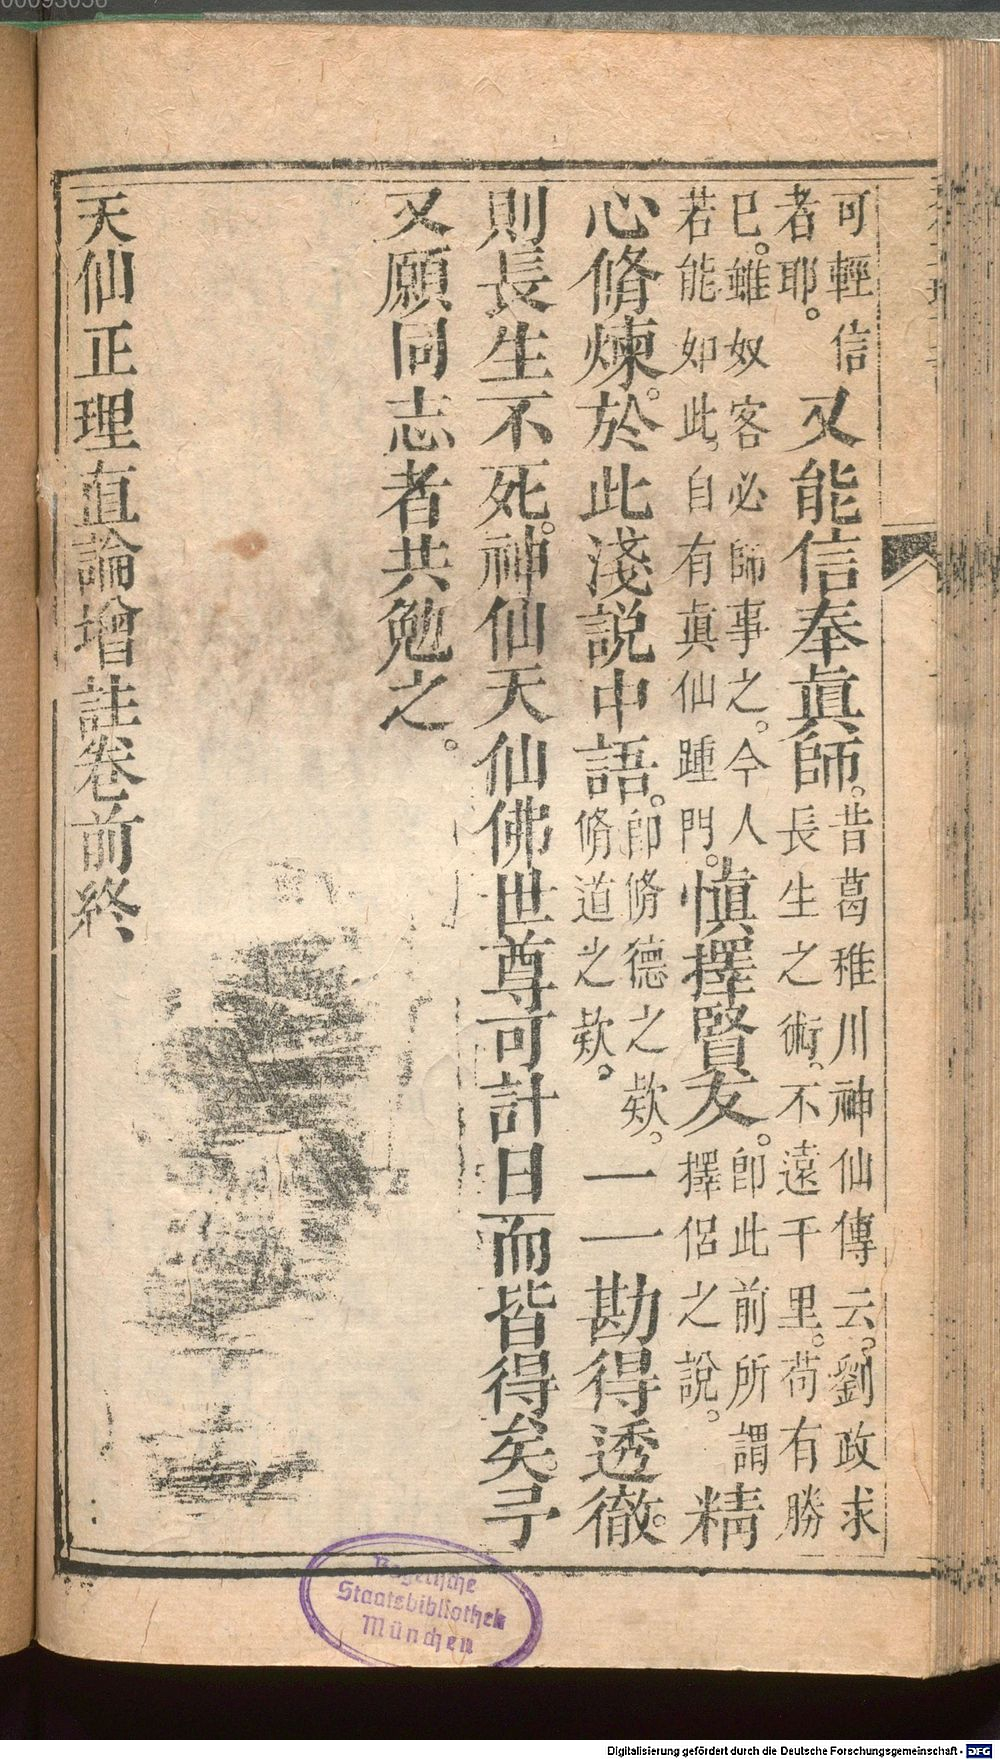 可輕信
者耶。
又能信奉眞師。
昔葛稚川神仙傳云。劉政求
長生之術。不遠千里。苟有勝
已。雖奴客必師事之。今人
若能如此。自有眞仙踵門。
愼擇賢友。
卽此前所謂
擇侶之說。
精
心脩煉。於此淺説中語。
卽脩德之欵。
脩道之欵。
一一勘得透徹。
則長生不死。神仙天仙佛世尊可計日而皆得矣。予
又願同志者共勉之。
天仙正理直論增註卷前終
Staatsbibliothek
München
Digitalisierung gefördert durch die Deutsche Forschungsgemeinschaft - DFG